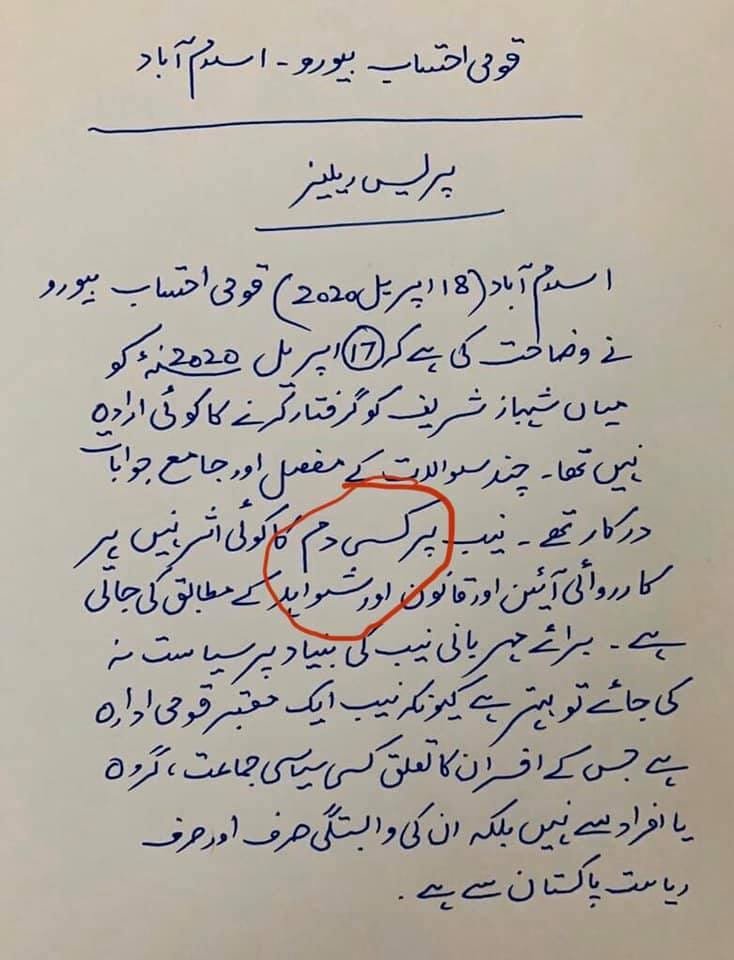 قومی احتساب بیورو - اسلام آباد
پریس ریلیز
اسلام آباد (18 اپریل 2020) قومی احتساب بیورو
نے وضاحت کی ہے کہ 17 اپریل 2020ء کو
میاں شہباز شریف کو گرفتار کرنے کا کوئی ارادہ
نہیں تھا۔ چند سوالات کے مفصل اور جامع جوابات
درکار تھے۔ نیب پر کسی دم کا کوئی اثر نہیں ہر
کارروائی آئین اور قانون اور شواہد کے مطابق کی جاتی
ہے۔ برائے مہربانی نیب کی بنیاد پر سیاست نہ
کی جائے تو بہتر ہے کیونکہ نیب ایک معتبر قومی ادارہ
ہے جس کے افسران کا تعلق کسی سیاسی جماعت، گروہ
یا افراد سے نہیں بلکہ ان کی وابستگی صرف اور صرف
ریاست پاکستان سے ہے۔